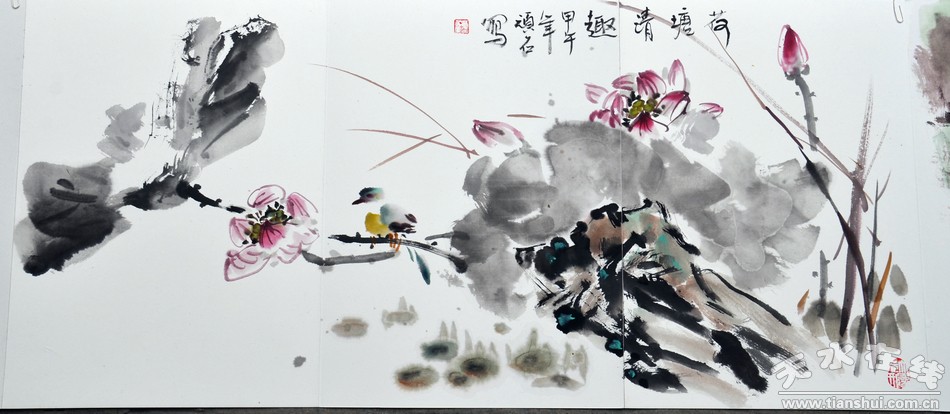 荷塘清趣
甲午
年
顽石
写
天水在线
www.tianshui.com.cn